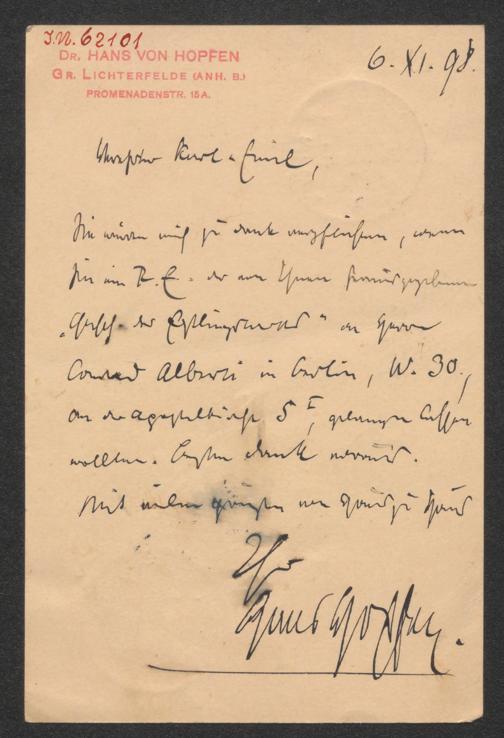 I.N. 62101
DR. HANS VON HOPFEN
GR. LICHTERFELDE (ANH. B.)
PROMENADENSTR. 15A.
6. XI. 98.
Karl Emil,
Sie würden mich zu Dank verpflichten, wenn
Sie ein R. E. der von Ihnen herausgegebenen
„Gesch. der Erstlingswerke“ an Herrn
Conrad Alberti in Berlin, W. 30.,
An der Apostelkirche 5 I, gelangen lassen
wollten. Besten Dank voraus.
Mit vielen Grüßen von Haus zu Haus
Ihr
Hans Hopfen.